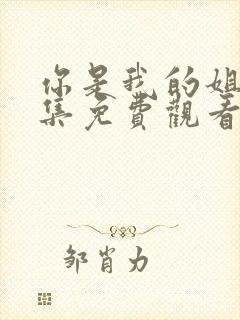 你是我的姐
集免費觀看
邹肖力